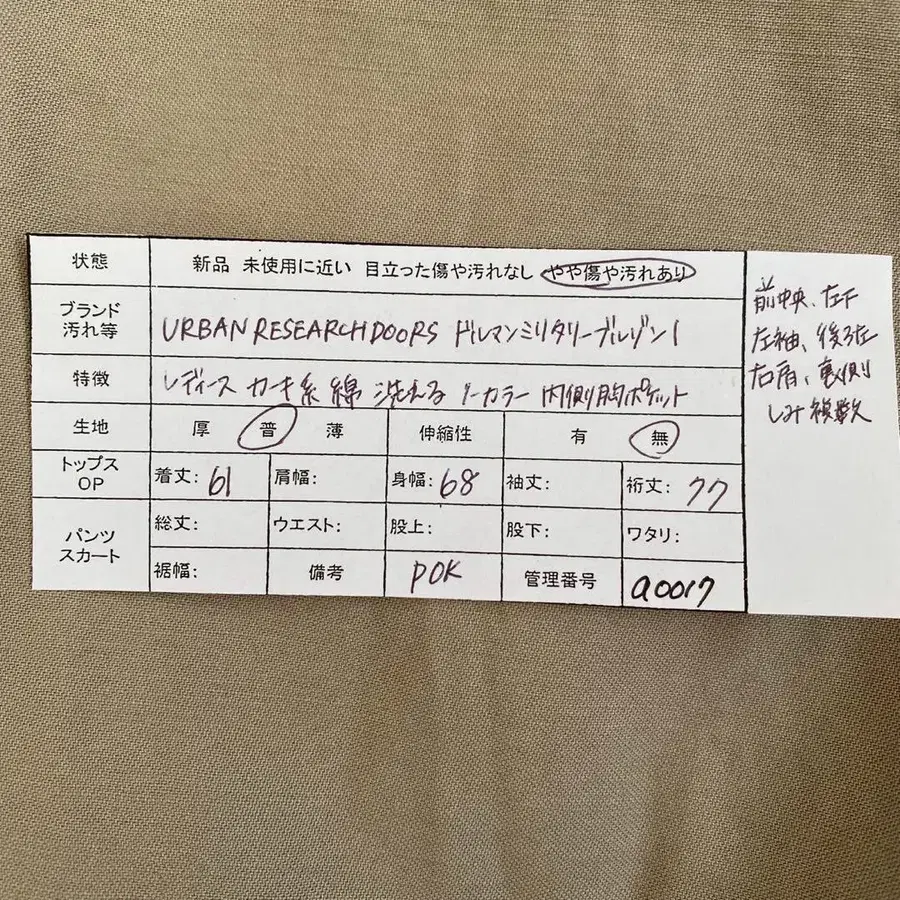 状態 新品 未使用に近い 目立った傷や汚れなし やや傷や汚れあり
ブランド 汚れ等 URBAN RESEARCH DOORS ドルマンミリタリーブルゾン
特徴 レディース カーキ系 綿 洗える ノーカラー 内側胸ポケット
生地 厚 普 薄 伸縮性 有 無
トップス OP 着丈: 61 肩幅: 身幅: 68 袖丈: 裄丈: 77
パンツ スカート 総丈: ウエスト: 股上: 股下: ワタリ:
裾幅: 備考 POK 管理番号 a0017
前中央、左下
左袖、後ろ左
右肩、裏側
しみ複数